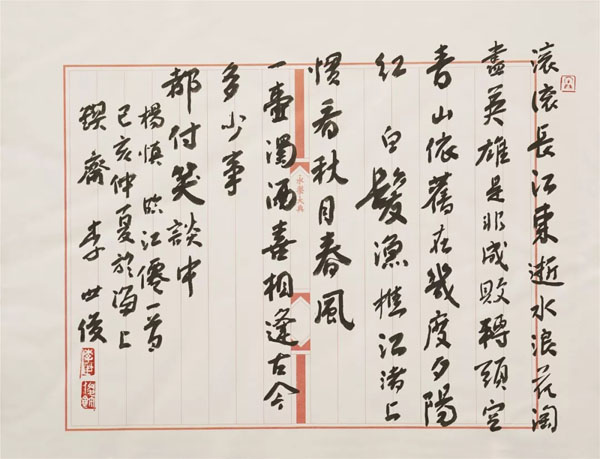 滚滚長江東逝水浪花淘
盡英雄是非成敗轉頭空
青山依舊在幾度夕陽
红 白髮漁樵江渚上
慣看秋月春風
一壺濁酒喜相逢古今
多少事
都付笑談中
楊慎臨江僊一首
己亥仲夏於海上
鍥齋 李世俊
永樂大典